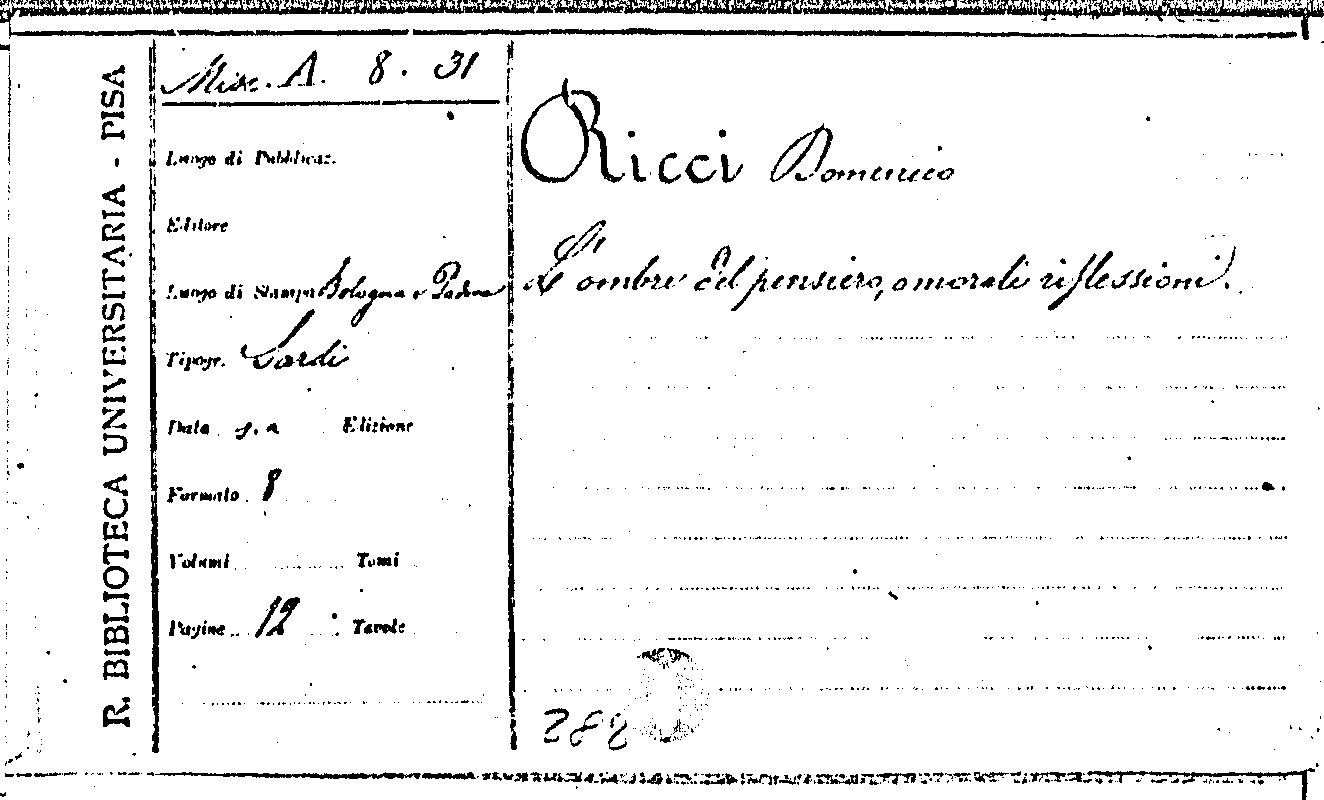 R. BIBLIOTECA UNIVERSITARIA - PISA
Misc. A. 8. 31
Luogo di Pubblicaz.
Editore
Luogo di Stampa Bologna e Padova
Tipogr. Sardi
Data s.a Edizione
Formato 8
Volumi Tomi
Pagine 12 Tavole
Ricci Domenico
L'ombre del pensiero, o morali riflessioni.
288